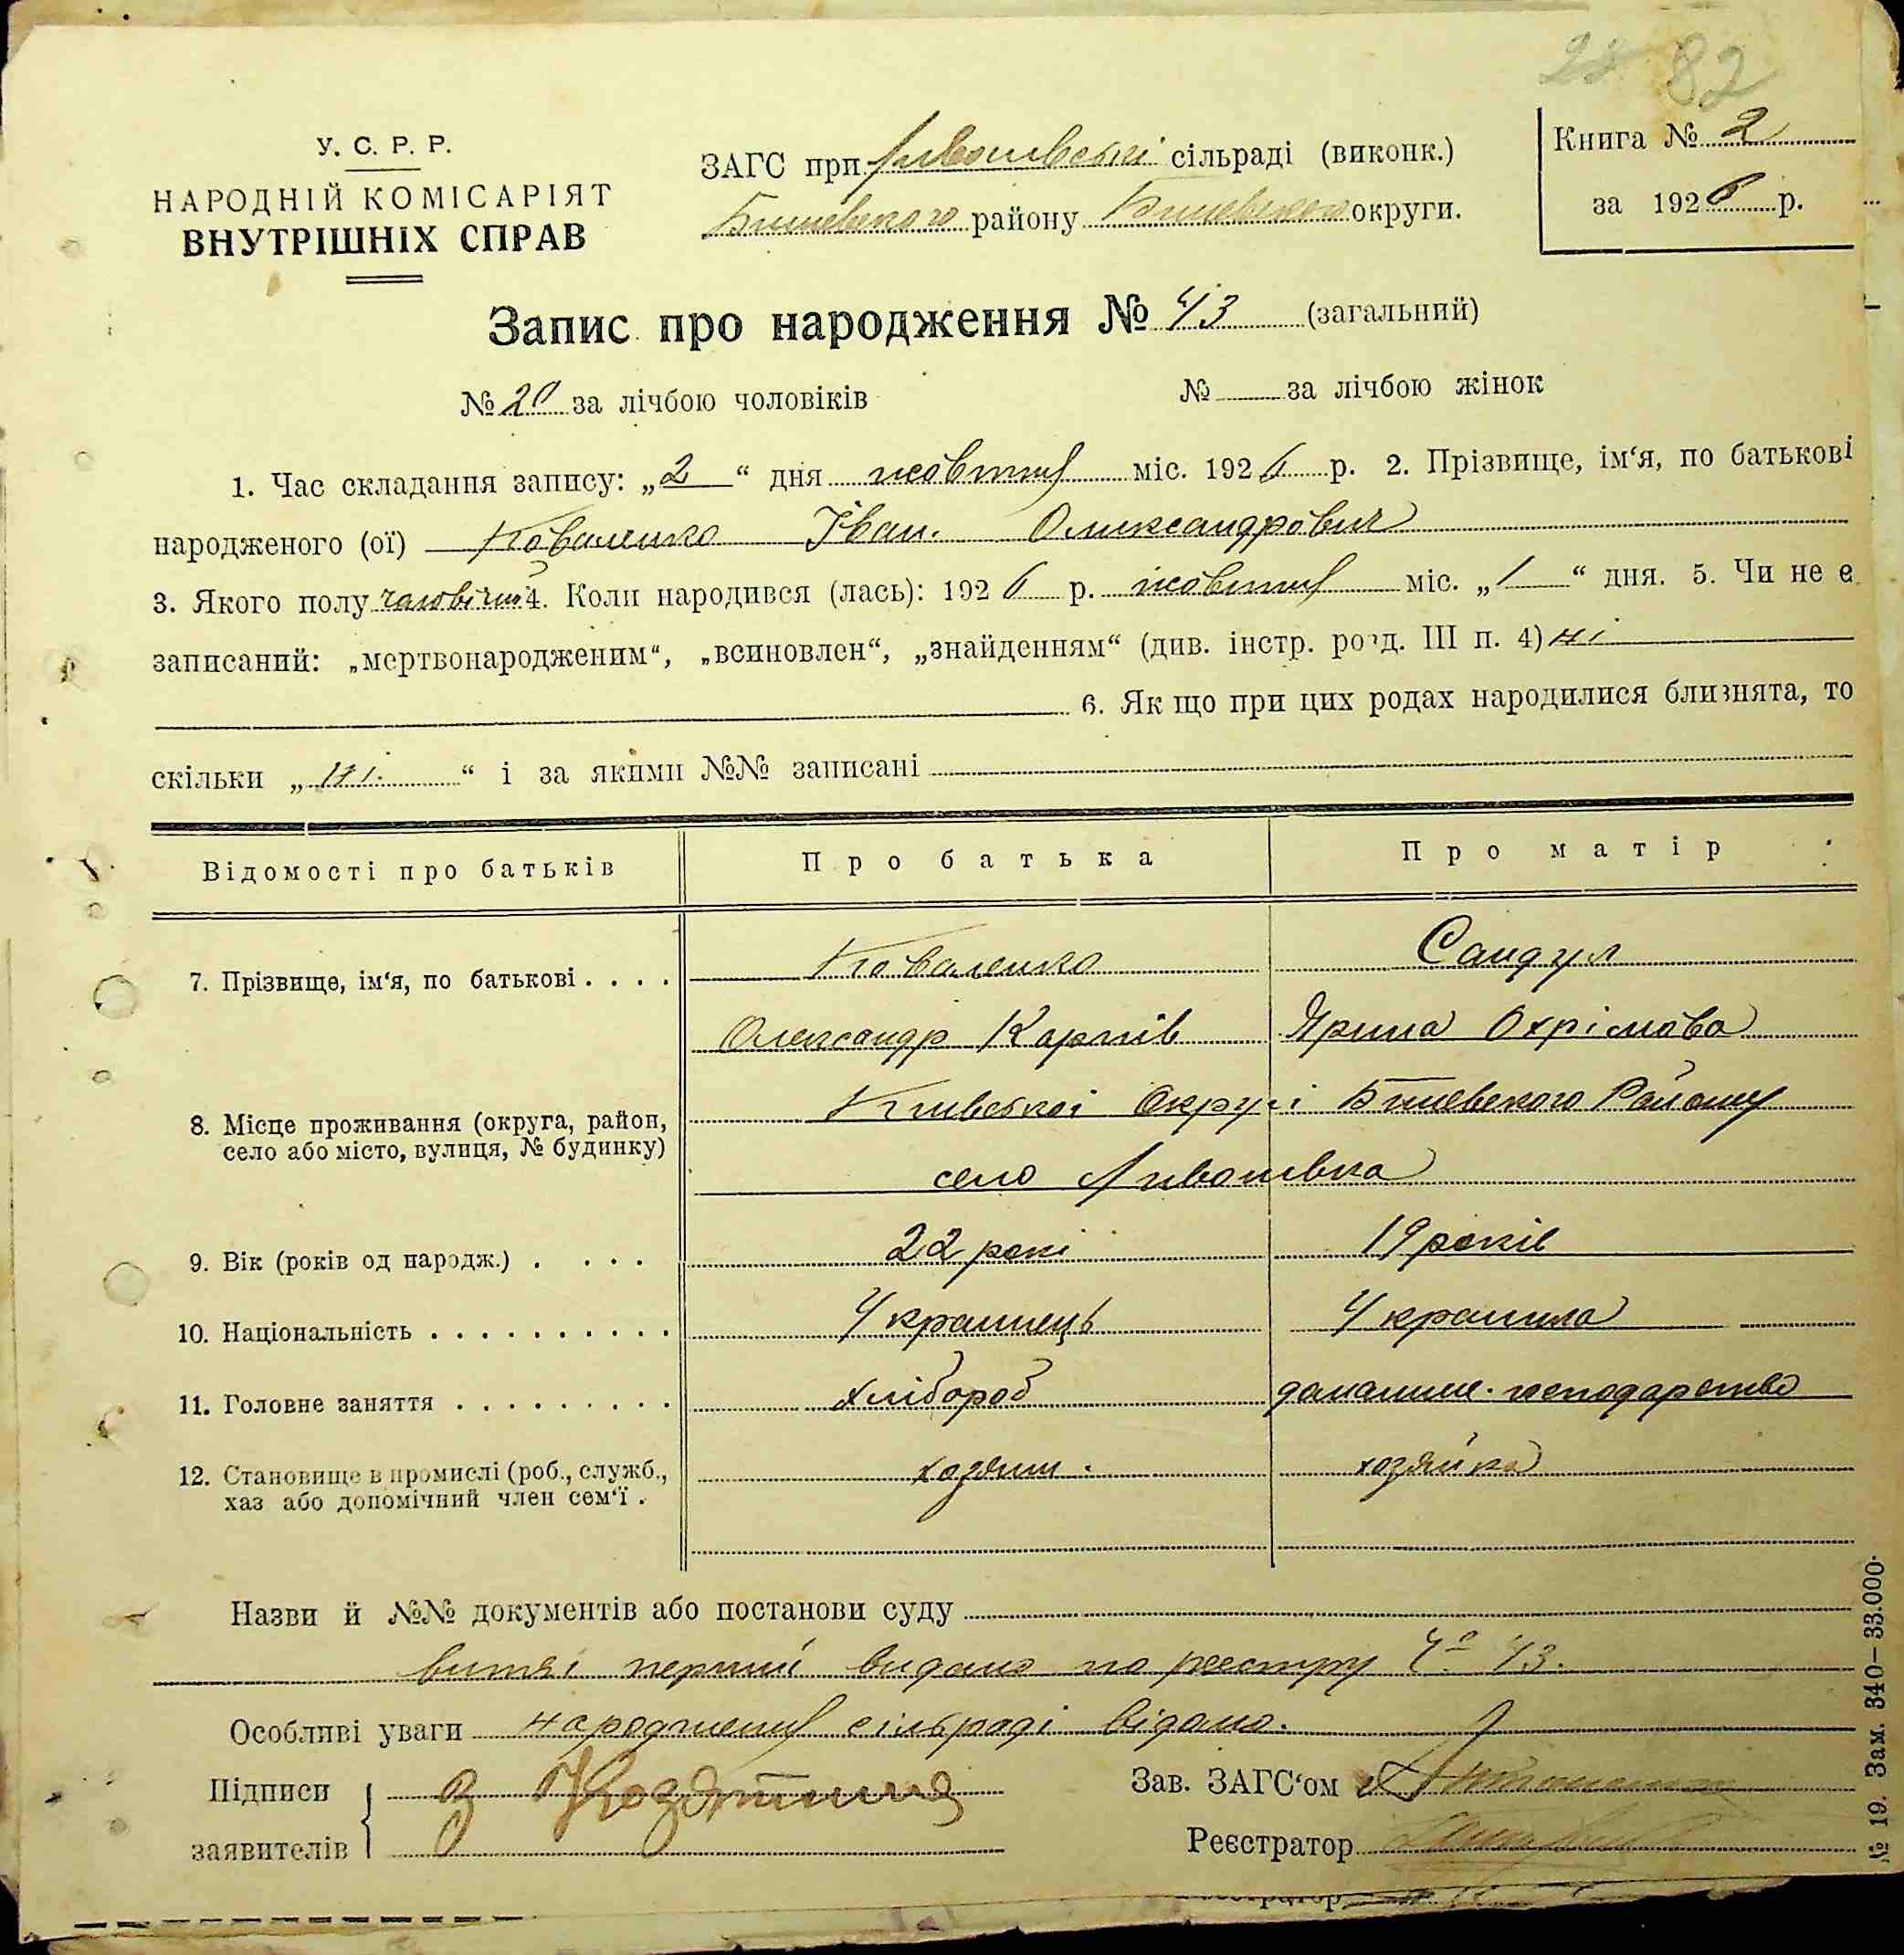 28 82
У. С. Р. Р.
НАРОДНІЙ КОМІСАРІЯТ
ВНУТРІШНІХ СПРАВ
ЗАГС при сільраді (виконк.)
Бишевского району округи.
Книга № 2
за 1926 р.
Запис про народження № 43 (загальний)
№ 20 за лічбою чоловіків № за лічбою жінок
1. Час складання запису: „2“ дня жовтня міс. 1926 р. 2. Прізвище, ім‘я, по батькові
народженого (ої) Коваленко Іван. Олександрович
3. Якого полу чоловічий 4. Коли народився (лась): 1926 р. жовтня міс. „1“ дня. 5. Чи не є
записаний: „мертвонародженим“, „всиновлен“, „знайденням“ (див. інстр. розд. III п. 4) ні
6. Як що при цих родах народилися близнята, то
скільки „ні.“ і за якими №№ записані
Відомості про батьків Про батька Про матір
7. Прізвище, ім‘я, по батькові . . . . Коваленко Сандул
Олександр Карпів Ярина Охрімова
8. Місце проживання (округа, район, Київської Округі Бишевского Району
село або місто, вулиця, № будинку)
село
9. Вік (років од народж.) . . . . 22 рокі 19 років
10. Національність . . . . . . . . . . Українець Українка
11. Головне заняття . . . . . . . . . хлібороб домашнє господарство
12. Становище в промислі (роб., служб., хозяин. хозяйка
хаз або допомічний член сем‘ї .
Назви й №№ документів або постанови суду
витяг перший видано по реестру № 43.
Особливі уваги народження сільраді відомо.
Підписи
заявителів
Зав. ЗАГС‘ом
Реєстратор
№ 19. Зам. 340—33.000.